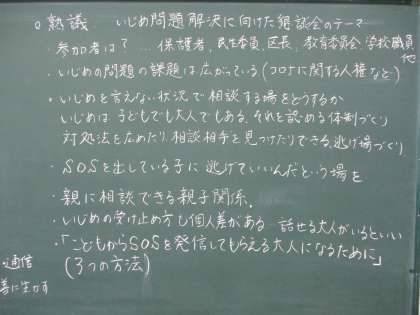 ○ 熟議 いじめ問題解決に向けた懇談会のテーマ
・参加者は? … 保護者、民生委員、区長、教育委員会、学校職員 他
・いじめの問題の課題は広がっている(コロナに関する人権など)
・いじめを言えない状況で相談する場をどうするか
いじめは、子どもでも大人でもある、それを認める体制づくり
対処法を広めたり、相談相手を見つけたりできる、逃げ場づくり
・SOSを出している子に逃げていいんだという場を
・親に相談できる親子関係、
・いじめの受け止め方も個人差がある 話せる大人がいるといい
・「こどもからSOSを発信してもらえる大人になるために」
(3つの方法)
・通信
に生かす